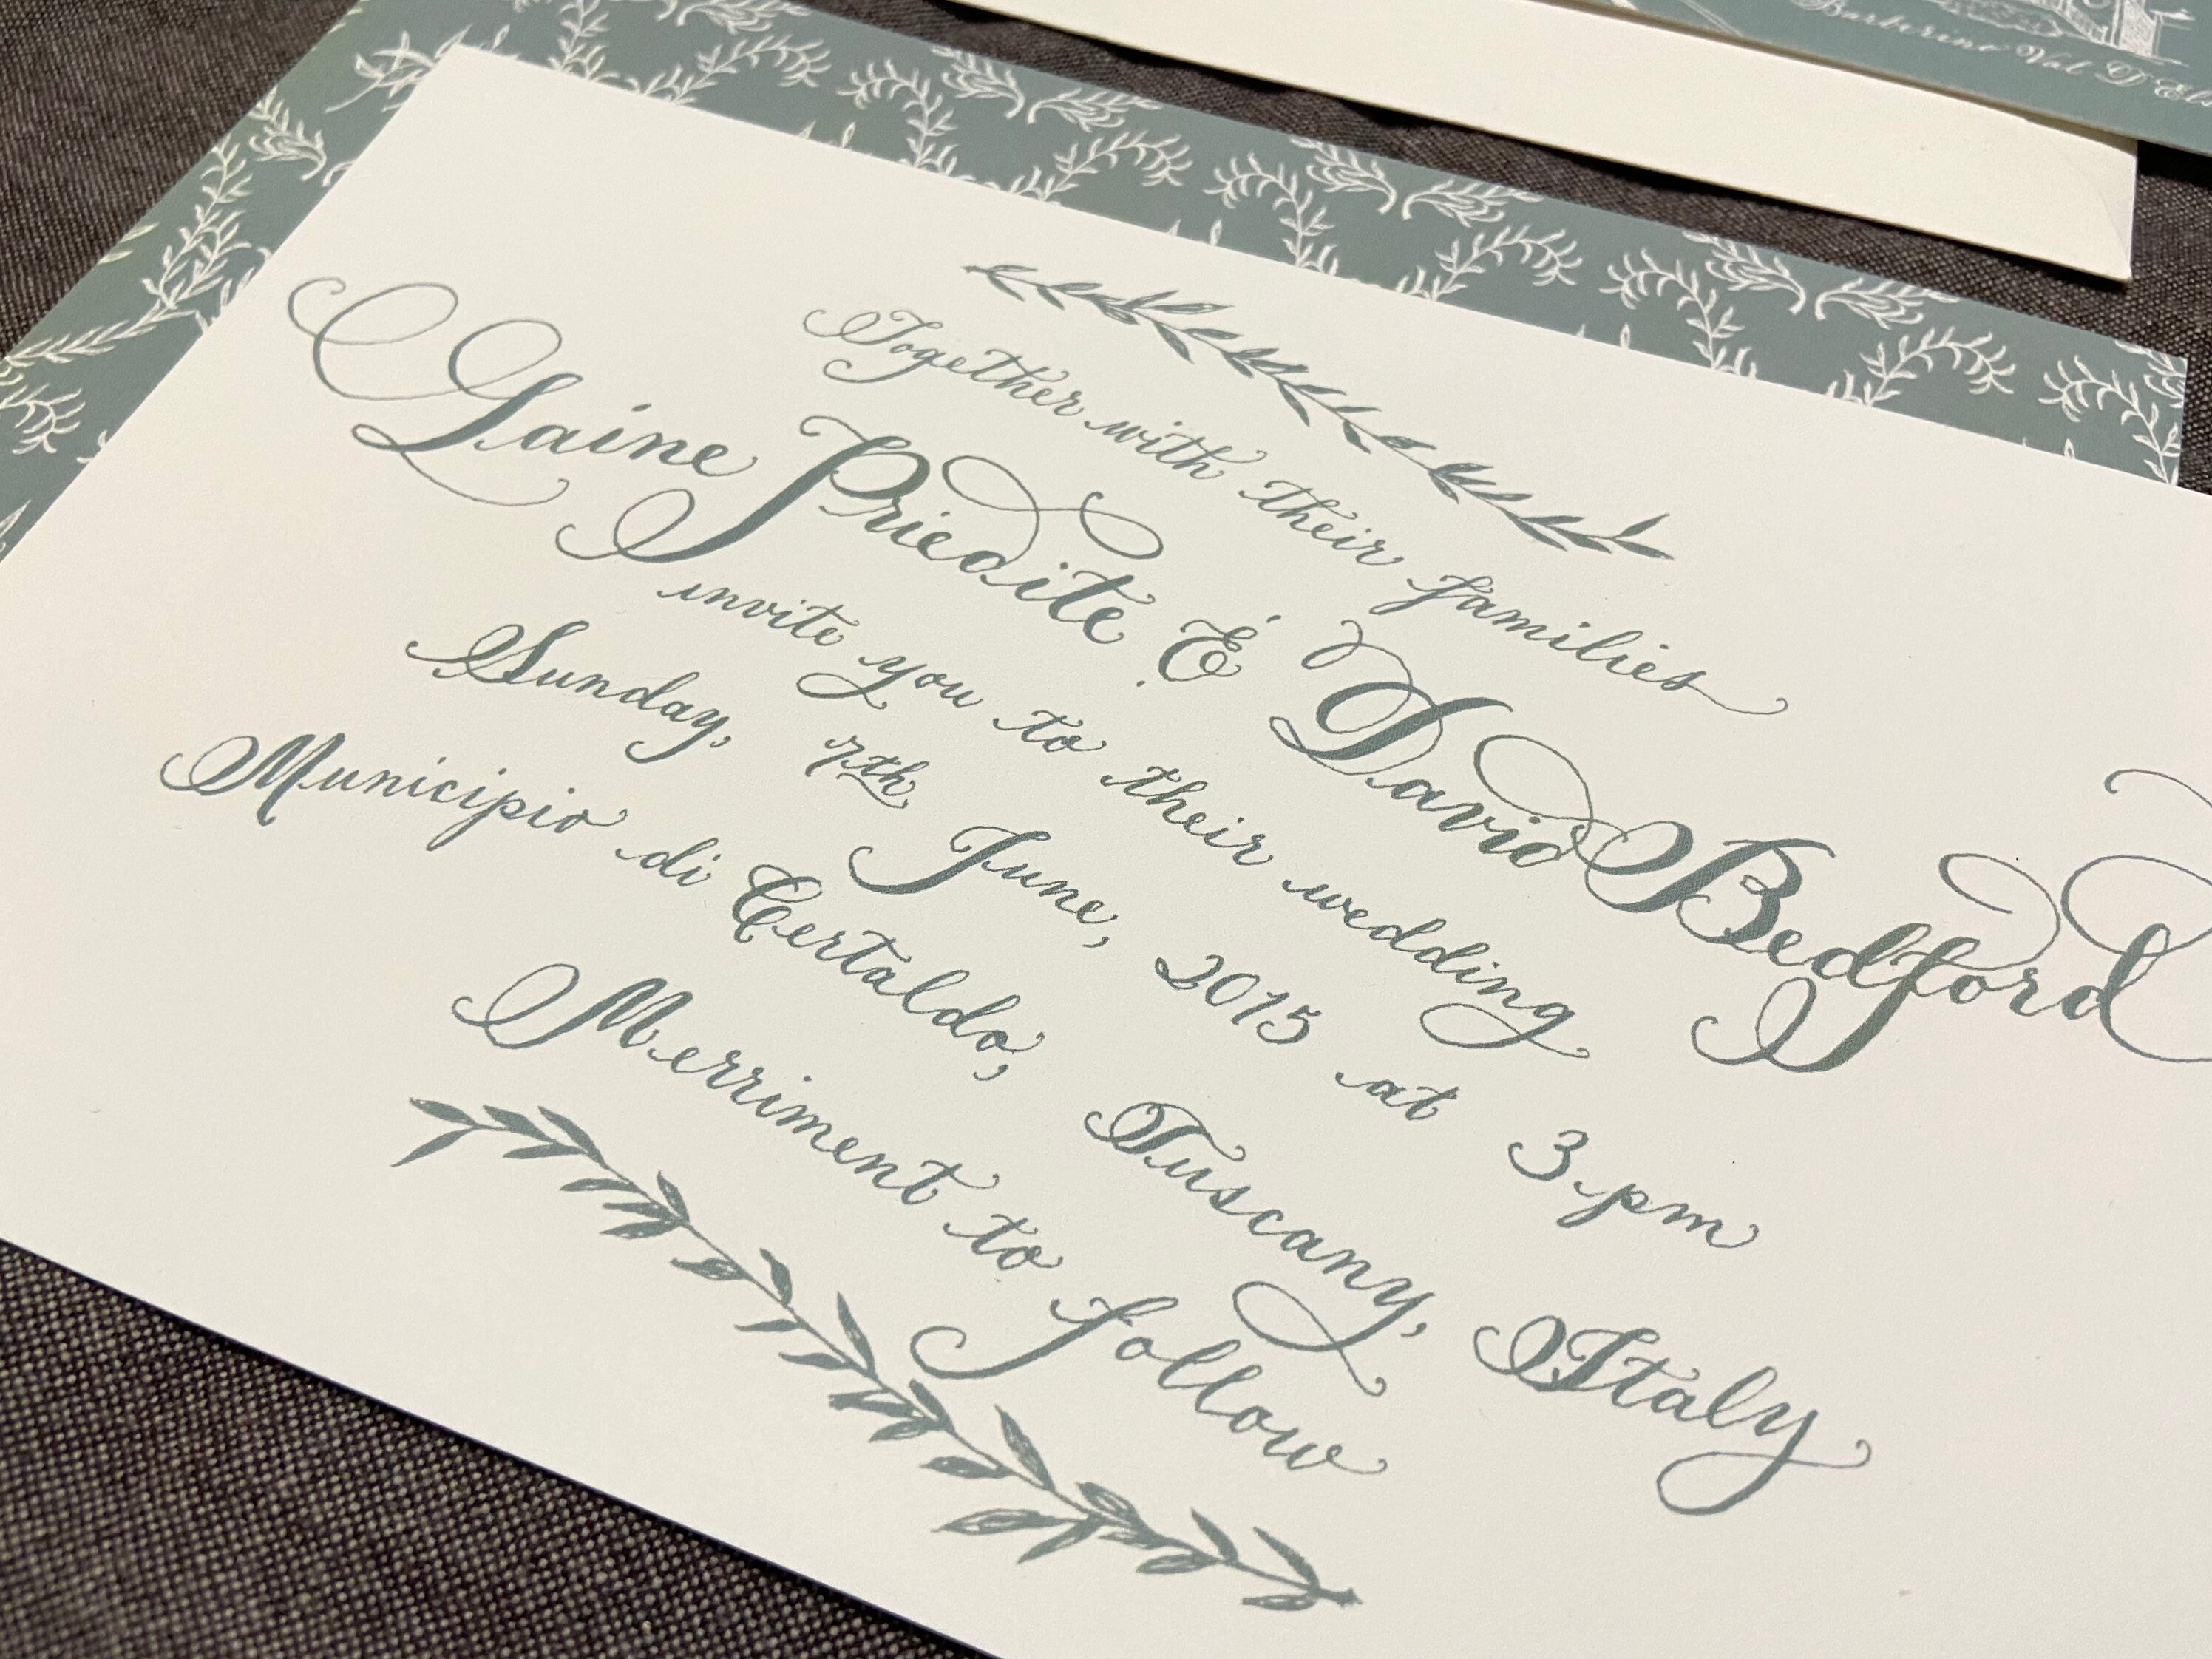 Barberino Val
Together with their families
Laine Priedite & David Bedford
invite you to their wedding
Sunday, 7th June, 2015 at 3 pm
Municipio di Certaldo, Tuscany, Italy
Merriment to follow